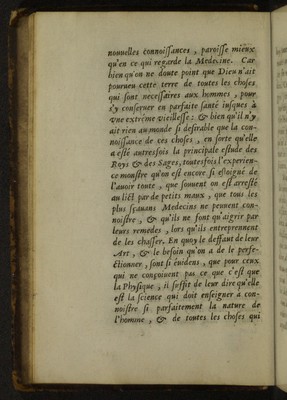 nouuelles connoissances, paroisse mieux
qu'en ce qui regarde la Medecine. Car
bien qu'on ne doute point que Dieu n'ait
pourueu cette terre de toutes les choses
qui sont necessaires aux hommes, pour
s'y conseruer en parfaite santé iusques à
vne extrême vieillesse: & bien qu'il n'y
ait rien au monde si desirable que la con-
noissance de ces choses, en sorte qu'elle
a esté autresfois la principale estude des
Roys & des Sages, toutesfois l'experien-
ce monstre qu'on est encore si esloigné de
l'auoir toute, que souuent on est arresté
au lict par de petits maux, que tous les
plus sçauans Medecins ne peuuent con-
noistre, & qu'ils ne font qu'aigrir par
leurs remedes, lors qu'ils entreprennent
de les chasser. En quoy le deffaut de leur
Art, & le besoin qu'on a de le perfe-
ctionner, sont si éuidens, que pour ceux
qui ne conçoiuent pas ce que c'est que
la Physique, il suffit de leur dire qu'elle
est la science qui doit enseigner à con-
noistre si parfaitement la nature de
l'homme, & de toutes les choses qui